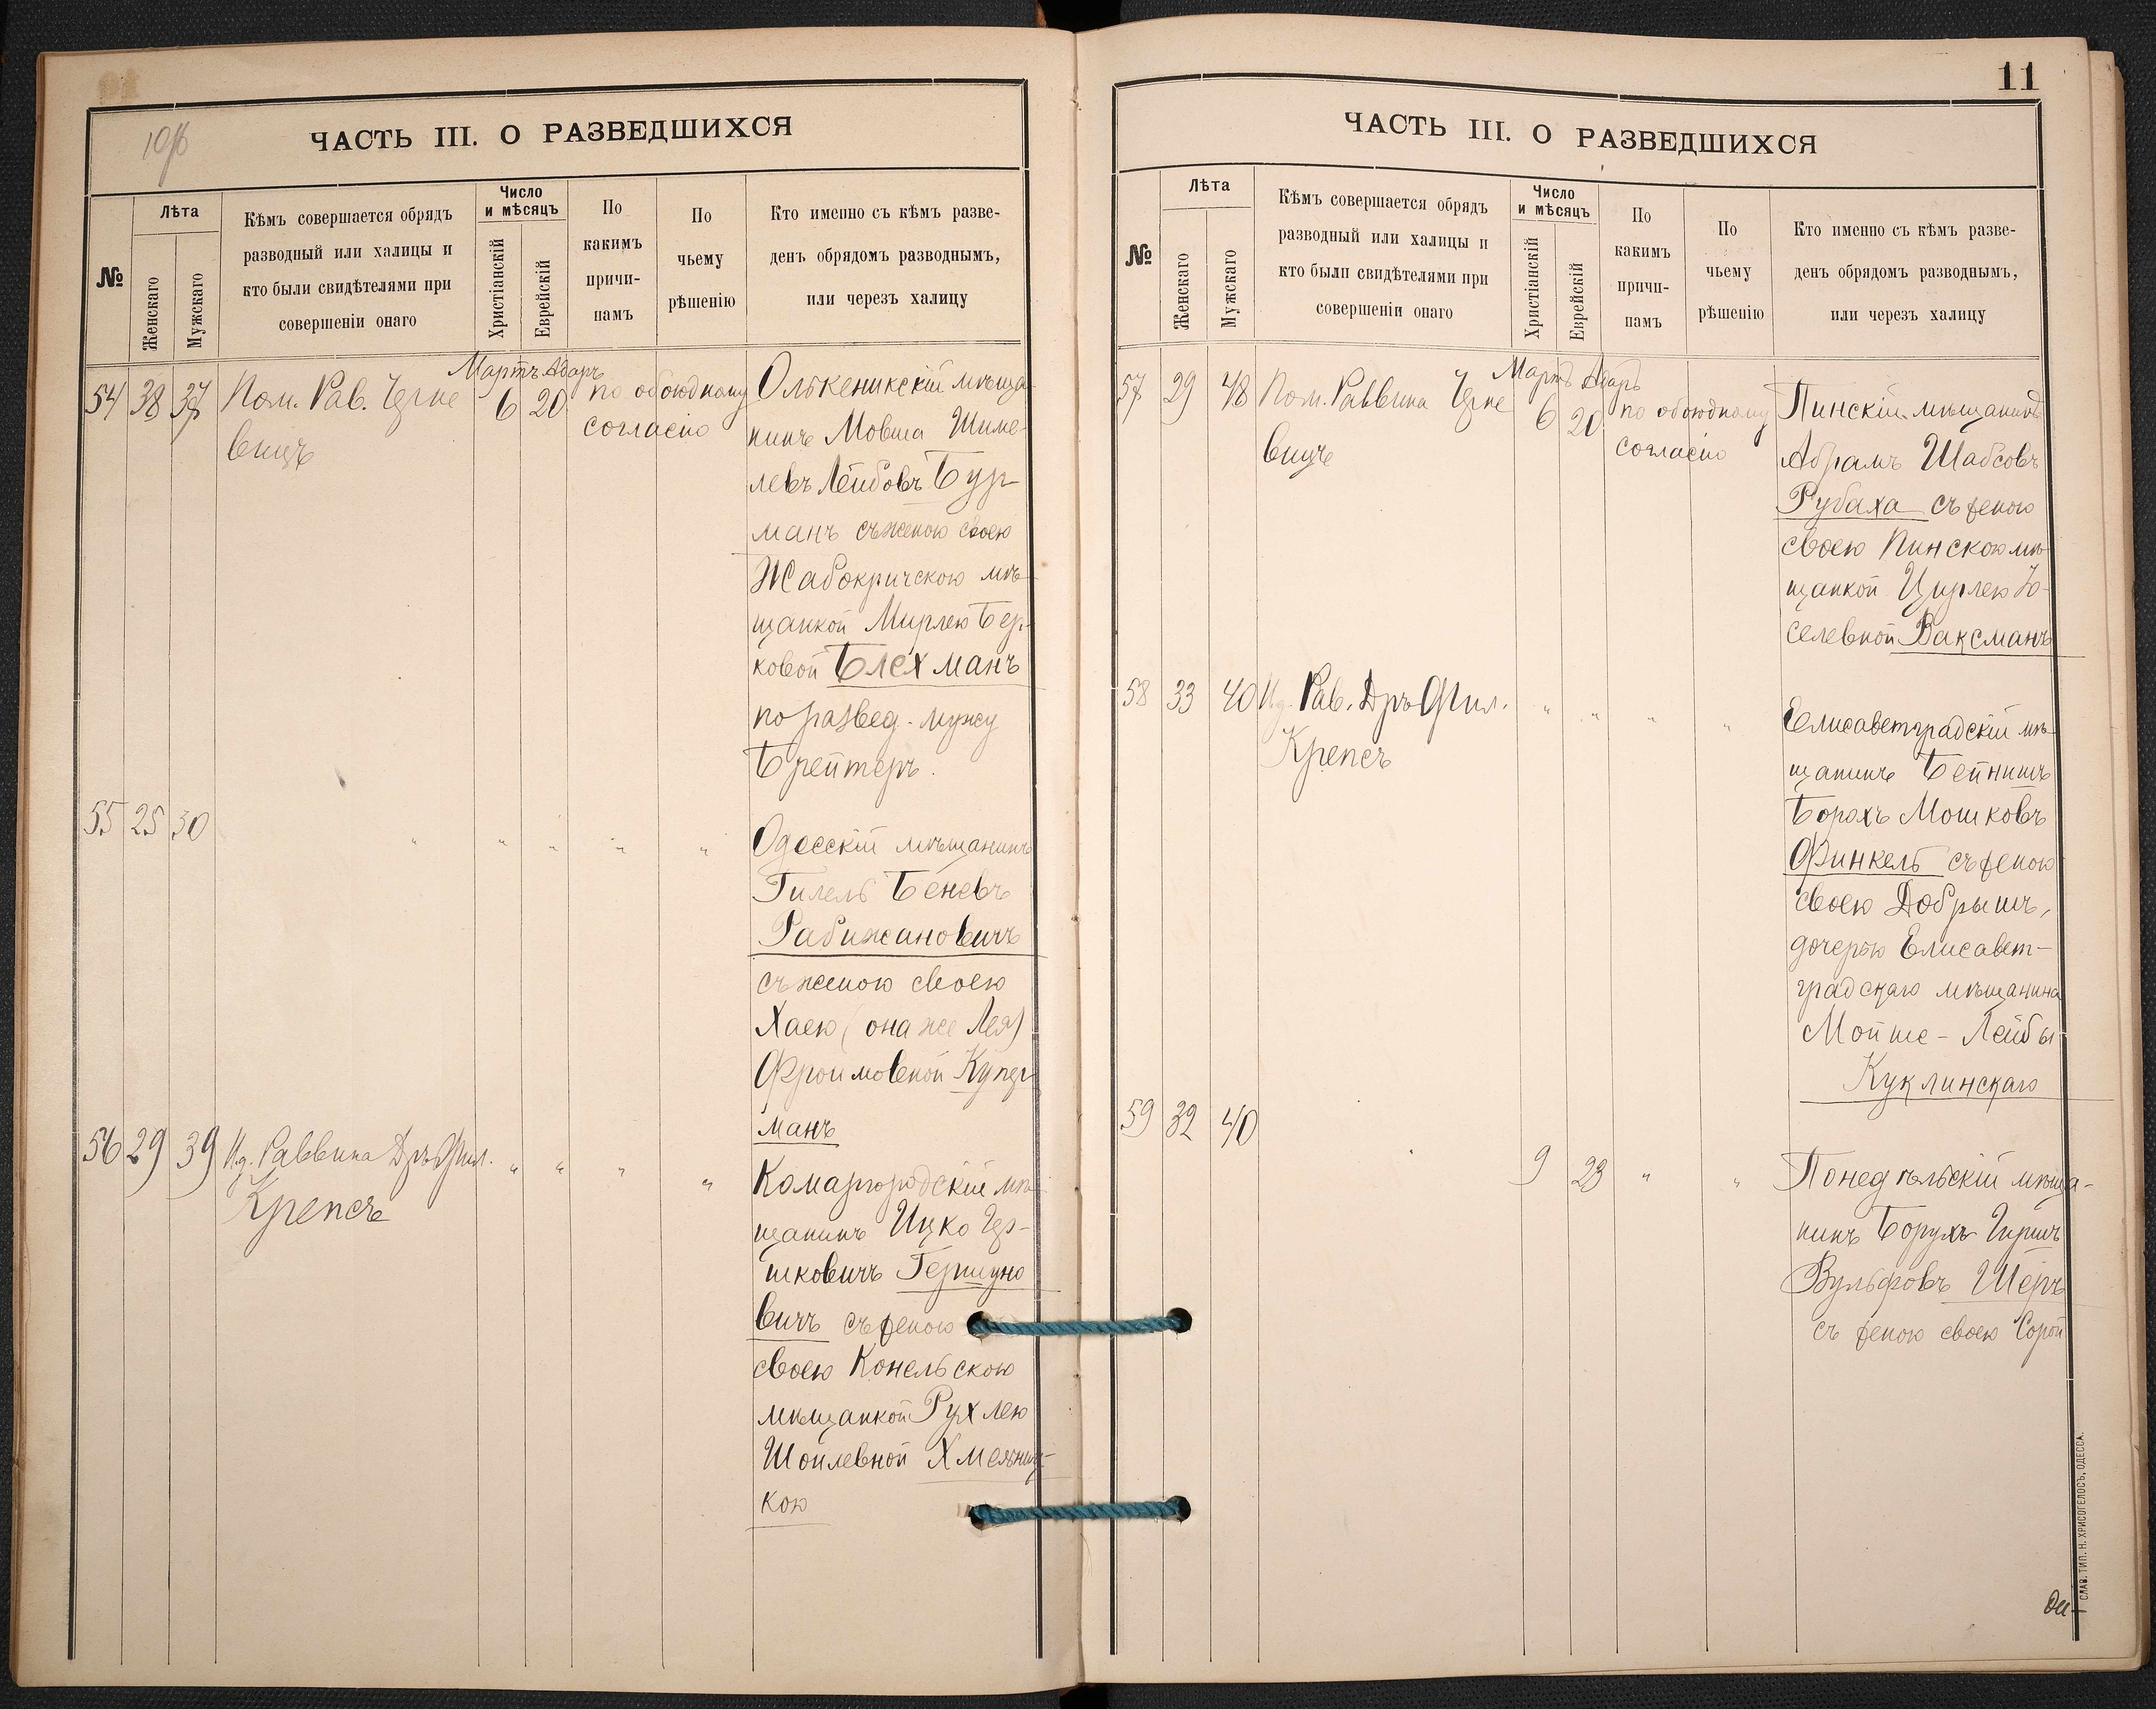 10/б
ЧАСТЬ III. О РАЗВЕДШИХСЯ
№
Лѣта
Женскаго
Мужскаго
Кѣмъ совершается обрядъ
разводный или халицы и
кто были свидѣтелями при
совершеніи онаго
Число
и мѣсяцъ
Христіанскій
Еврейскій
По
какимъ
причи-
намъ
По
чьему
рѣшенію
Кто именно съ кѣмъ разве-
денъ обрядомъ разводнымъ,
или черезъ халицу
Мартъ Адаръ
54 38 37 Пом. Рав. Черне 6 20 по обоюдному
вицъ
согласію
Олькеникскій мѣща
нинъ Мовша Шиме
левъ Лейбовъ Бур
манъ съ женою своею
Жабокричскою мѣ-
щанкой Мирлею Бер-
ковой Блехманъ
по развед. мужу
Брейтеръ.
55 25 30 " " " " "
Одесскій мѣщанинъ
Гилель Беневъ
Рабижановичъ
съ женою своею
Хаею (она же Лея)
Фроимовной Купер
манъ
56 29 39 И.д. Раввина Дръ Фил. " " " "
Крепсъ
Комаргородскій мѣ
щанинъ Ицко Гер-
шковичъ Гершуно
вичъ съ женою
своею Конельскою
мѣщанкой Рухлею
Шоилевной Хмельниц-
кою
11
ЧАСТЬ III. О РАЗВЕДШИХСЯ
№
Лѣта
Женскаго
Мужскаго
Кѣмъ совершается обрядъ
разводный или халицы и
кто были свидѣтелями при
совершеніи онаго
Число
и мѣсяцъ
Христіанскій
Еврейскій
По
какимъ
причи-
намъ
По
чьему
рѣшенію
Кто именно съ кѣмъ разве-
денъ обрядомъ разводнымъ,
или черезъ халицу
Мартъ Адаръ
57 29 48 Пом. Раввина Черне 6 20 по обоюдному
вицъ
согласію
Пинскій мѣщанинъ
Абрамъ Шабсовъ
Рубаха съ женою
своею Пинскою мѣ
щанкой Цирлею Іо-
селевной Ваксманъ
58 33 40 И.д. Рав. Дръ Фил. " " " "
Крепсъ
Елисаветградскій мѣ
щанинъ Бейнишъ
Борохъ Мошковъ
Финкель съ женою
своею Добрышъ,
дочерью Елисавет-
градскаго мѣщанина
Мойше-Лейбы
Куклинскаго
59 32 40 " 9 23 " "
Понедѣльскій мѣща-
нинъ Борухъ Гиршъ
Вульфовъ Шеръ
съ женою своею Сорой
СЛАВ. ТИП. Н. ХРИСОГЕЛОСЪ, ОДЕССА.